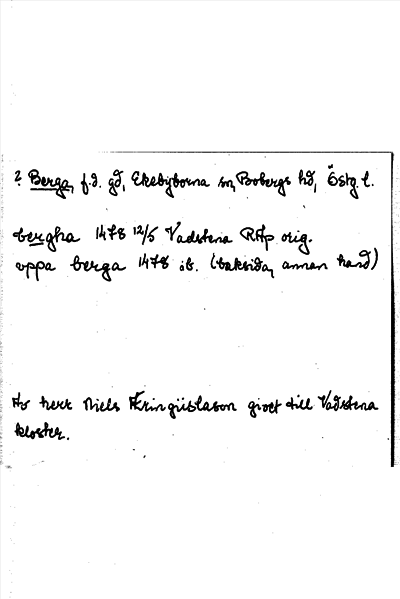 ? Berga, f.d. gd, Ekebyborna sn, Bobergs hd, Östg. l.
bergha 1478 12/5 Vadstena RAp orig.
uppa berga 1478 ib. (baksida, annan hand)
Av herr Niels givet till Vadstena
kloster.